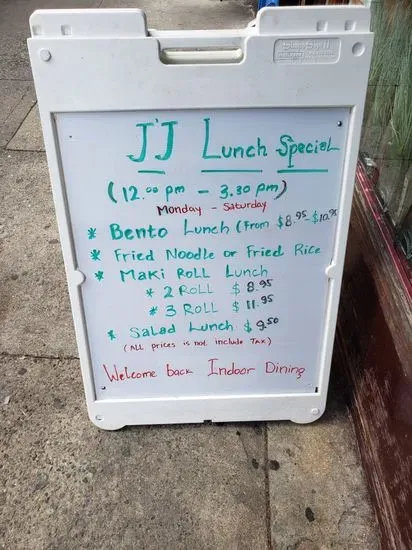 J'J Lunch Special
(12.00 pm - 3.30 pm)
Monday - Saturday
* Bento Lunch (From $8.95 - $10.95
* Fried Noodle or Fried Rice
* Maki Roll Lunch
* 2 ROLL $ 8.95
* 3 ROLL $ 11.95
* Salad Lunch $ 9.50
(ALL prices is not include TAX)
Welcome back Indoor Dining